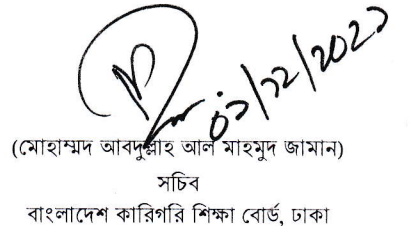 ০১/১২/২০২১
(মোহাম্মদ আবদুল্লাহ আল মাহমুদ জামান)
সচিব
বাংলাদেশ কারিগরি শিক্ষা বোর্ড, ঢাকা